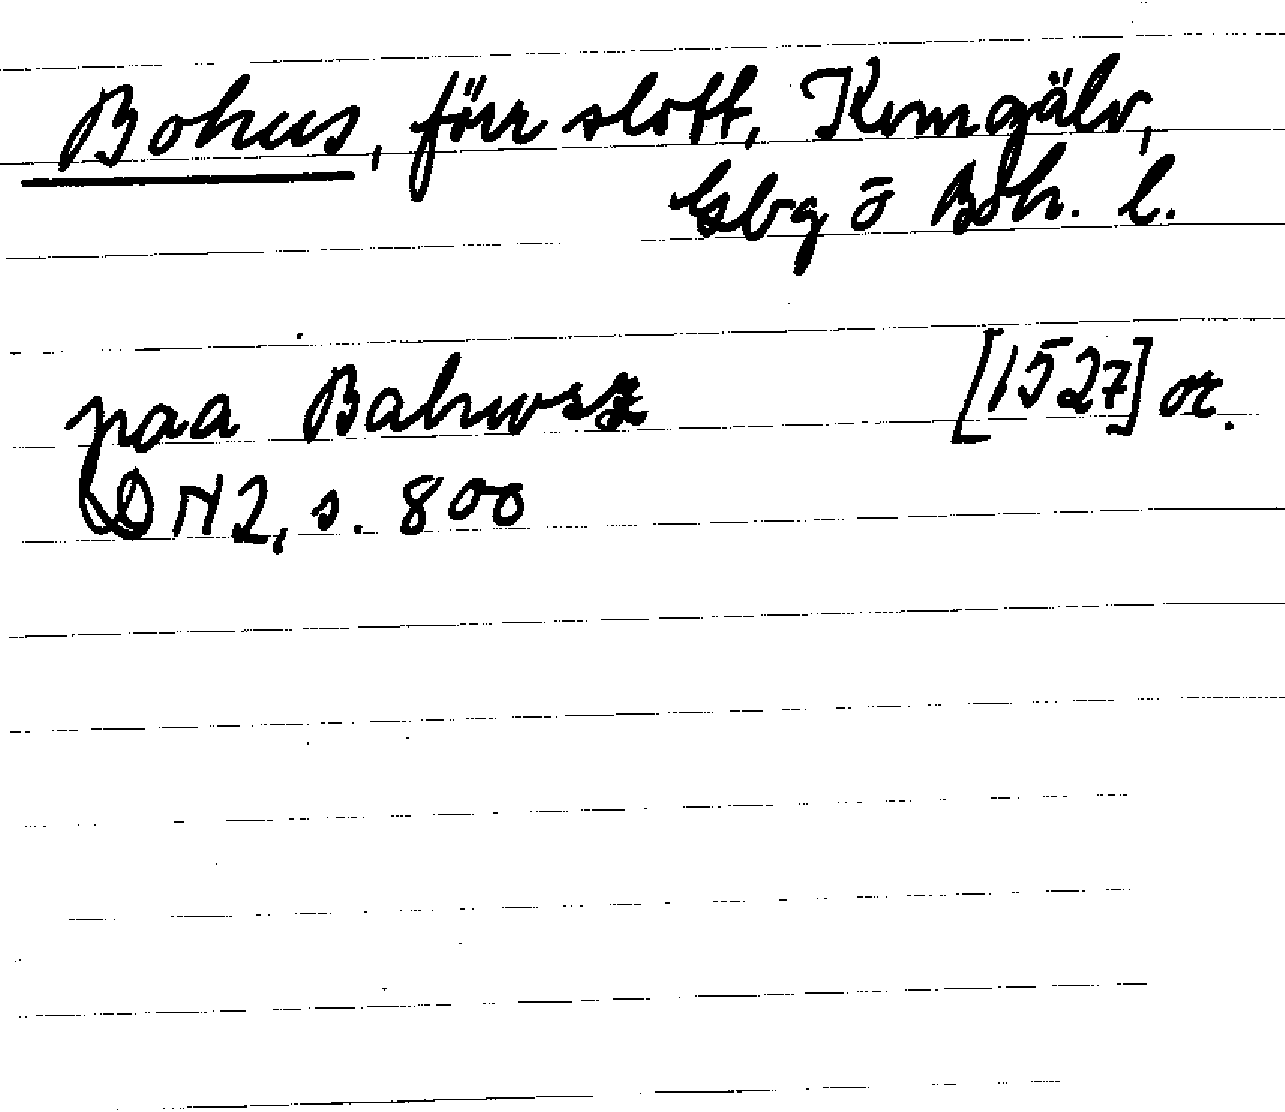 Bohus, förr slott, Kungälv,
Gbg o Boh. l.
paa Bahwsz [1527] or.
DN2, s. 800